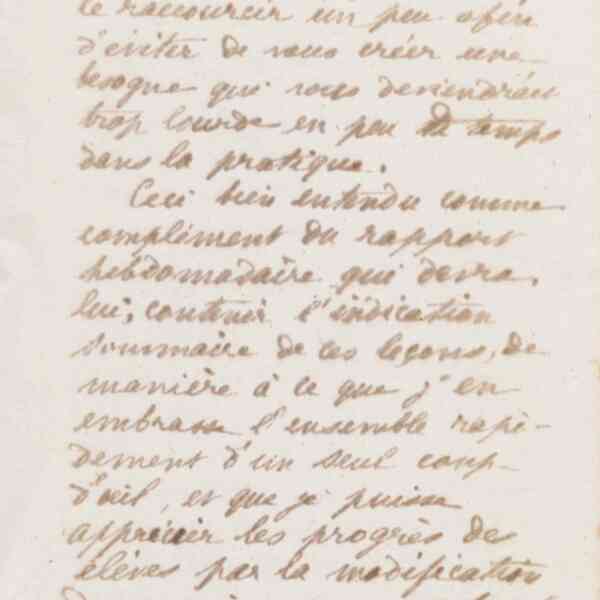 le raccourcir un peu afin
d'éviter de vous créer une
besogne qui vous deviendrait
trop lourde en peu de temps
dans la pratique.
Ceci bien entendu comme
complément du rapport
hebdomadaire qui devra,
lui, contenir l'indication
sommaire de ces leçons, de
manière à ce que j'en
embrasse l'ensemble rapi-
dement d'un seul coup-
d'œil, et que je puisse
apprécier les progrès des
élèves par la modification